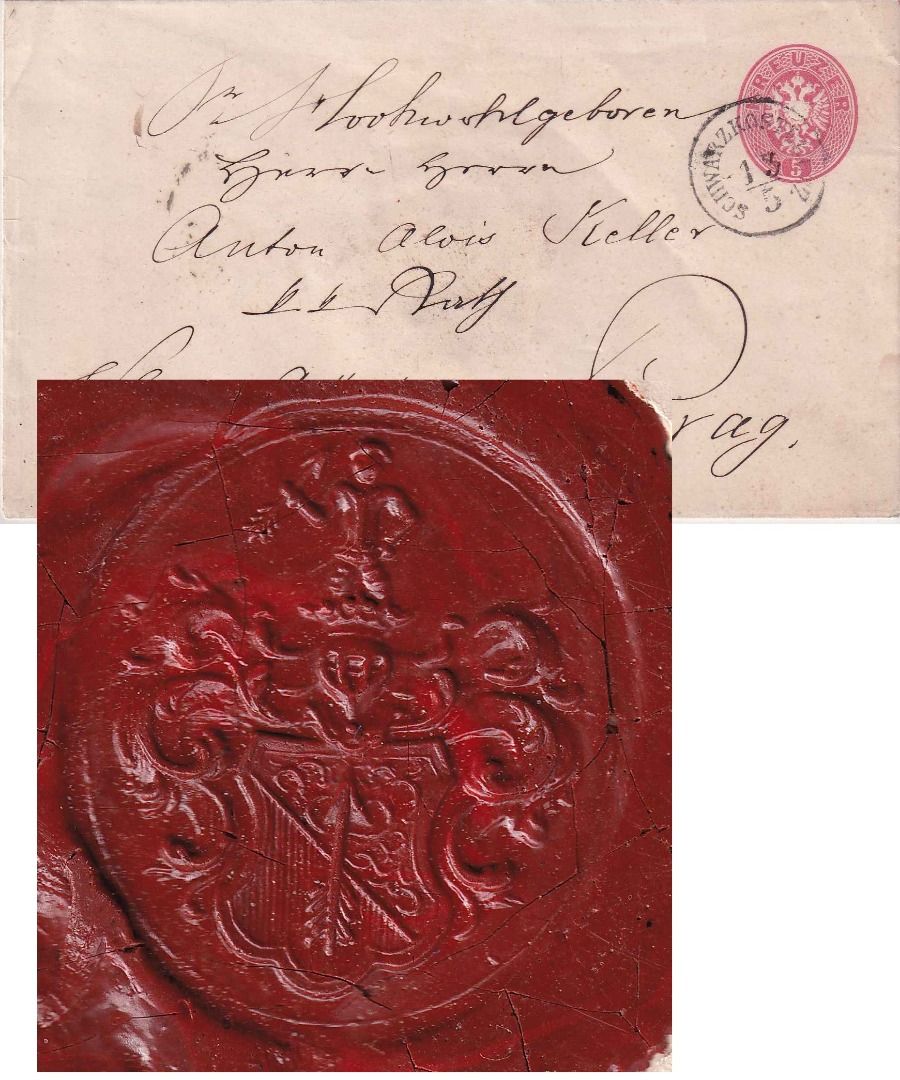 Sr Hochwohlgeboren
Herrn Herrn
Anton Alois Keller
k k Rath
Prag.
KREUZER
5
SCHWARZKOSTELETZ